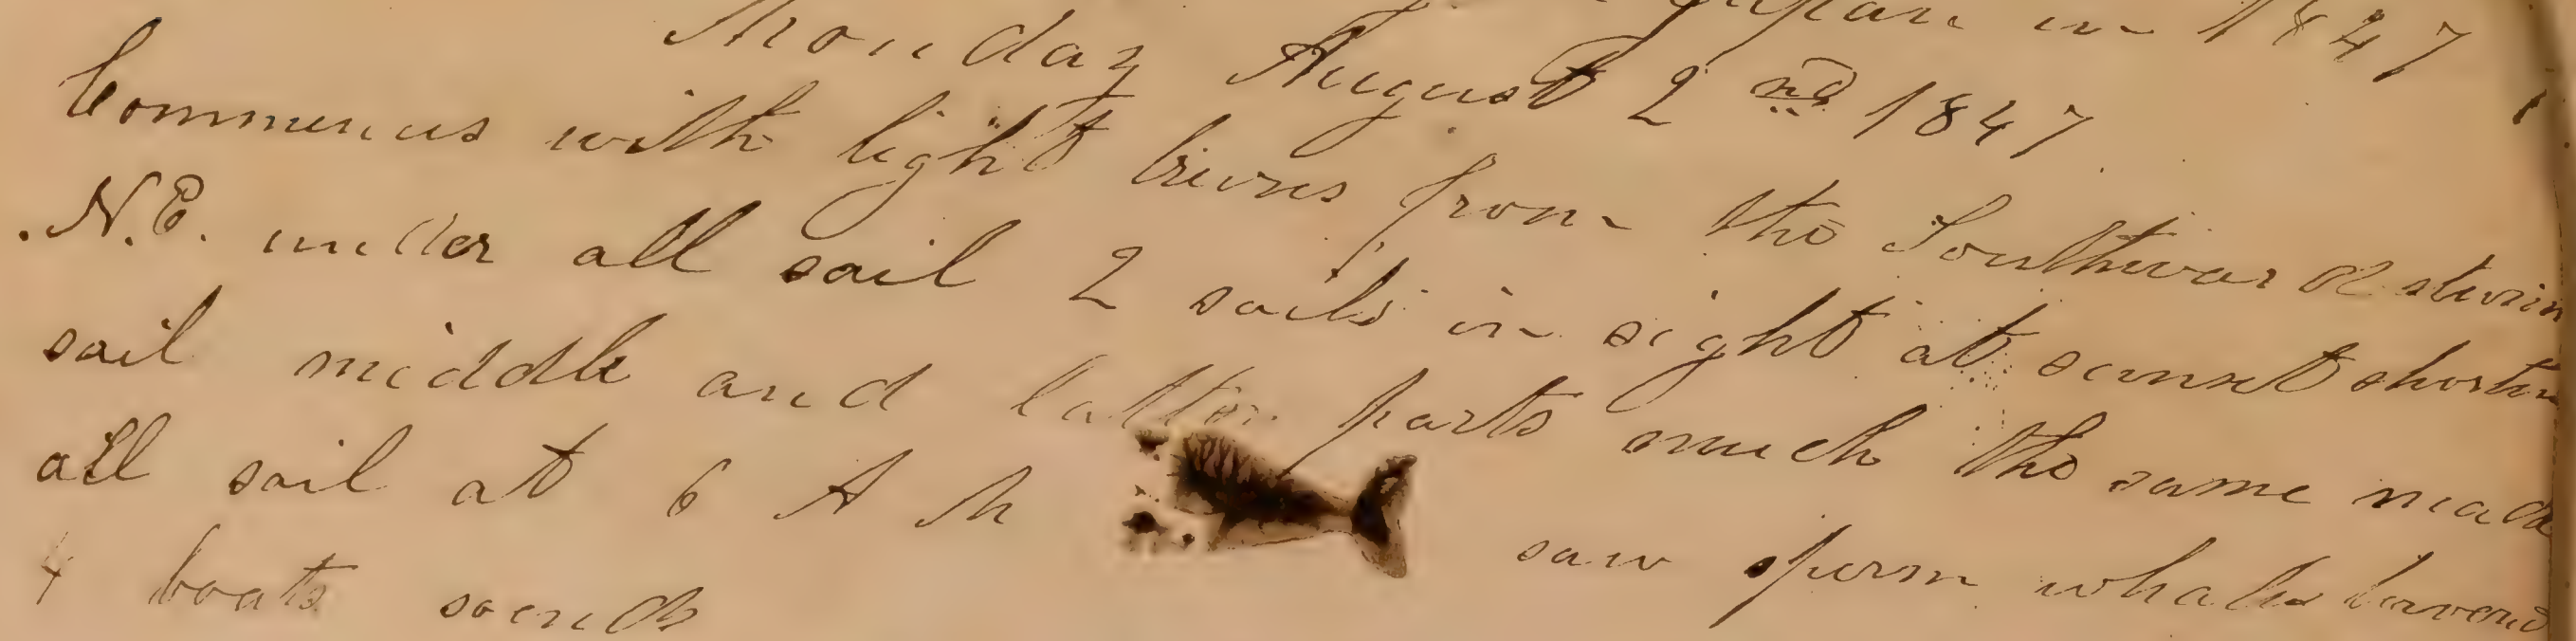 Japan in 1847
Monday August 2nd 1847
Commences with light brieses from the Southward sterin
N.E. under all sail 2 sails in sight at sunset shorten
sail middle and latter parts much the same made
all sail at 6 A M saw sperm whales lowered
4 boats